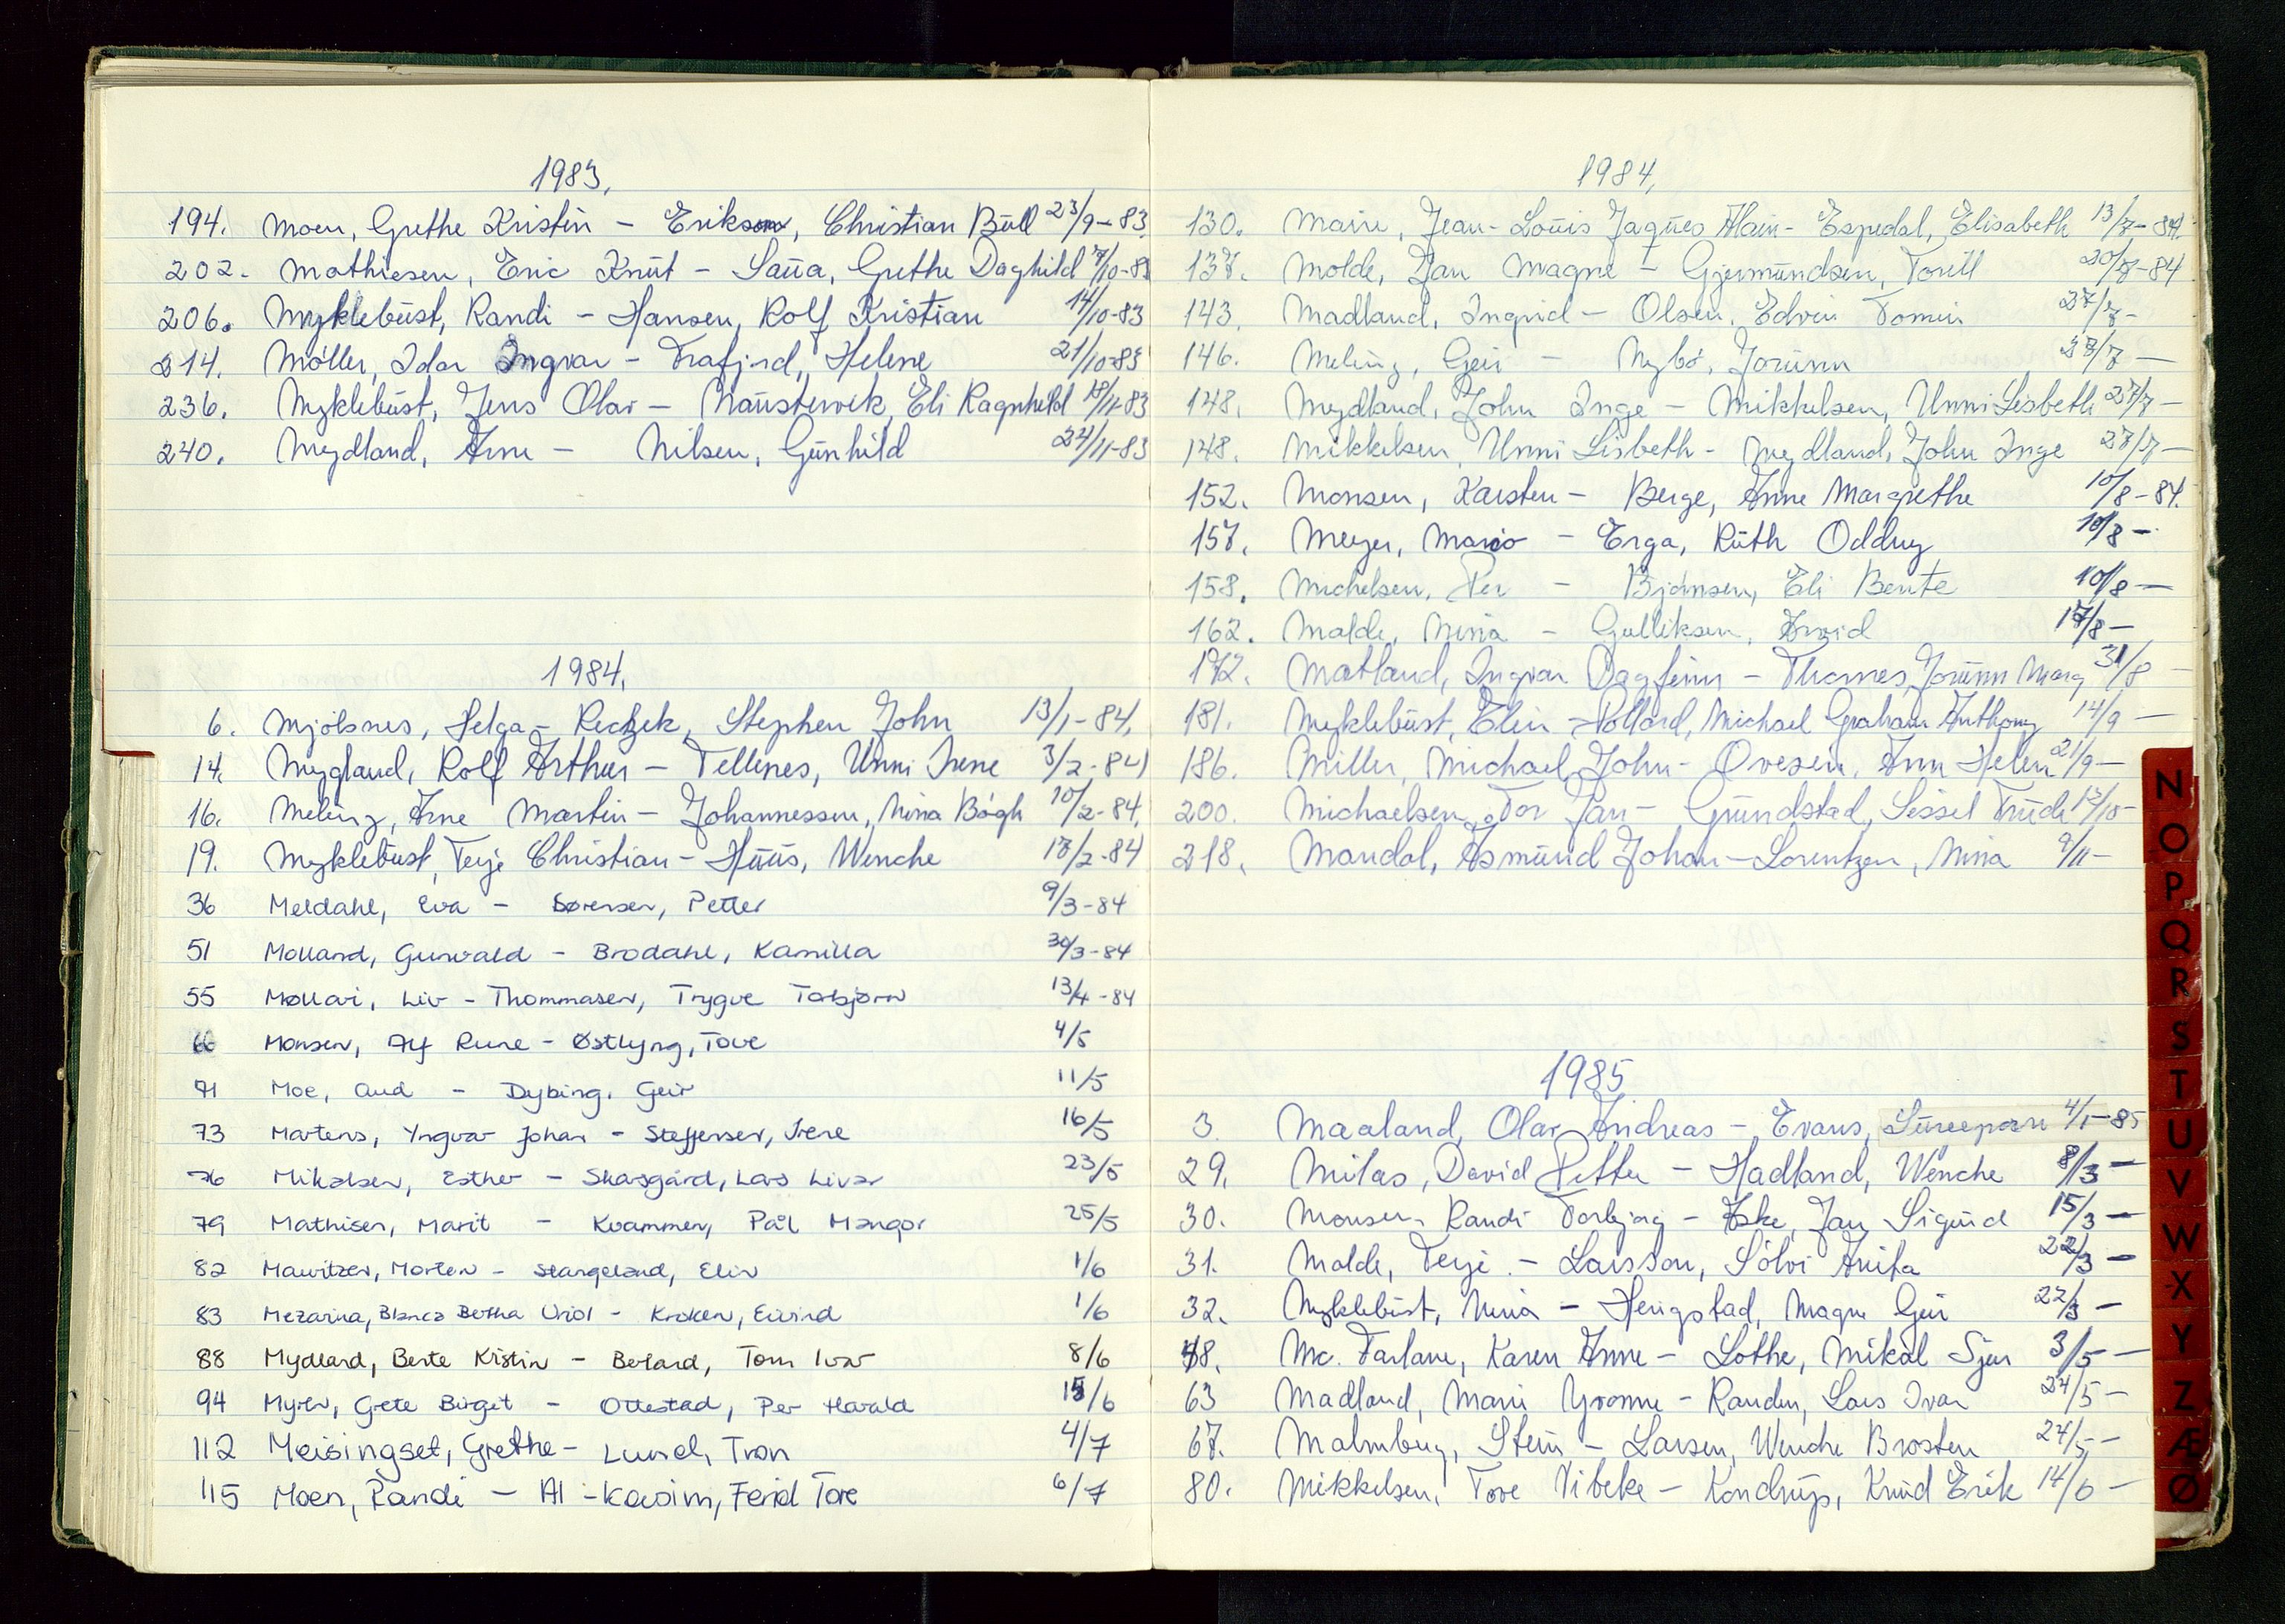 1983,
194. Moen, Grethe Kristin - Erikson, Christian Büll 23/9-83
202. Mathiesen, Eric Knut - Saua, Grethe Daghild 7/10-83
206. Myklebust, Randi - Hansen, Rolf Kristian 14/10-83
214. Möller, Idar Ingvar - Frafjord, Helene 21/10-83
236. Myklebust, Jens Olav - Naustervik, Eli Ragnhild 18/11-83
240. Mydland, Arne - Nilsen, Gunhild 24/11-83
1984.
6. Mjölsnes, Helga - Rectzek, Stephen John 13/1-84.
14. Mygland, Rolf Arthur - Tellenes, Unni Irene 3/2-84
16. Meling, Arne Martin - Johannessen, Nina Bøgh 10/2-84.
19. Myklebust, Terje Christian - Huus, Wenche 18/2-84
36 Meldahl, Eva - Sørensen, Petter 9/3-84
51 Molland, Gunvald - Brodahl, Kamilla 30/3-84
55 Møllari, Liv - Thommasen, Trygve Torbjørn 13/4-84
66 Monsen, Alf Rune - Østlyng, Tove 4/5
71 Moe, Aud - Dybing, Geir 11/5
73 Martens, Yngvar Johan - Steffensen, Irene 16/5
76 Mikalsen, Esther - Skasgård, Lars Livar 23/5
79 Mathisen, Marit - Kvammen, Pål Mangor 25/5
82 Mauritzen, Morten - Stangeland, Elin 1/6
83 Mezarina, Blanca Bertha Uriol - Kroken, Eivind 1/6
88 Mydland, Bente Kristin - Berland, Tom Ivar 8/6
94 Myren, Grete Birgit - Ottestad, Per Harald 15/6
112 Meisingset, Grethe - Lund, Tron 4/7
115 Moen, Randi - Al-Kavoim, Ferid Tore 6/7
1984,
130. Marie, Jean-Louis Jaques Alain - Espedal, Elisabeth 13/7-84.
137. Molde, Jan Magne - Gjermundsen, Torill 20/7-84
143. Madland, Ingrid - Olsen, Edvin Tomin 27/7-
146. Meling, Geir - Nybø, Jorunn 27/7-
148. Mydland, John Inge - Mikkelsen, Unni Lisbeth 27/7-
148. Mikkelsen, Unni Lisbeth - Mydland, John Inge 27/7-
152. Monsen, Karsten - Berge, Anne Margrethe 10/8-84.
157. Meyer, Mario - Erga, Ruth Oddny 10/8-
158. Michelsen, Per - Bjørnsen, Eli Bente 10/8-
162. Malde, Nina - Gulliksen, Arvid 17/8-
172. Matland, Ingvar Dagfinn - Thornes, Jorunn Marg 31/8-
181. Myklebust, Elin - Pollard, Michael Graham Anthony 14/9-
186. Miller, Michael John - Ovesen, Ann Helen 21/9-
200. Michaelsen, Tor Jan - Grundstad, Sissel Trude 12/10-
218. Mandal, Asmund Johan - Lorentzen, Nina 9/11-
1985
3. Maaland, Olav Andreas - Evans, 4/1-85
29. Milas, David Petter - Hadland, Wenche 8/3-
30. Monsen, Randi Torbjørg - Aske, Jan Sigurd 15/3-
31. Malde, Terje - Larsson, Sölvi Anita 22/3-
32. Myklebust, Nina - Hengstad, Magne Geir 22/3-
48. Mc. Farlane, Karen Anne - Lothe, Mikal Sjur 3/5-
63 Madland, Mari Yvonne - Randen, Lars Ivar 24/5-
67. Malmberg, Stein - Larsen, Wenche Brosten 24/5-
80. Mikkelsen, Tove Vibeke - Kondrup, Knud Erik 14/6-
N
O
P
Q
R
S
T
U
V
W
X
Y
Z
Æ
Ø